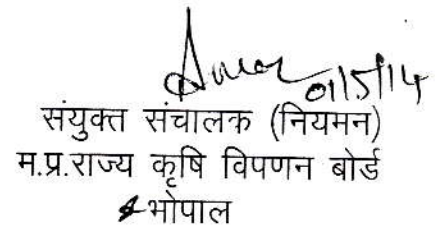 01/5/14
संयुक्त संचालक (नियमन)
म.प्र.राज्य कृषि विपणन बोर्ड
भोपाल